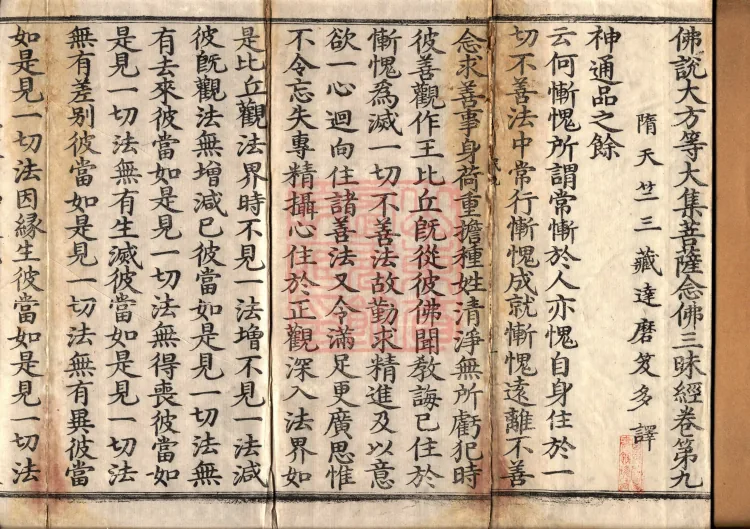 佛說大方等大集菩薩念佛三昧經卷第九
隋天竺三藏達磨笈多譯
神通品之餘
云何慚愧所謂常慚於人亦愧自身住於一
切不善法中常行慚愧成就慚愧遠離不善
念求善事身荷重擔種姓清淨無所虧犯時
彼善觀作王比丘既從彼佛聞教誨已住於
慚愧為滅一切不善法故勤求精進及以意
欲一心迴向住諸善法又令滿足更廣思惟
不令忘失專精攝心住於正觀深入法界如
是比丘觀法界時不見一法增不見一法減
彼既觀法無增減已彼當如是見一切法無
有去來彼當如是見一切法無得喪彼當如
是見一切法無有生滅彼當如是見一切法
無有差別彼當如是見一切法無有異彼當
如是見一切法因緣生彼當如是見一切法